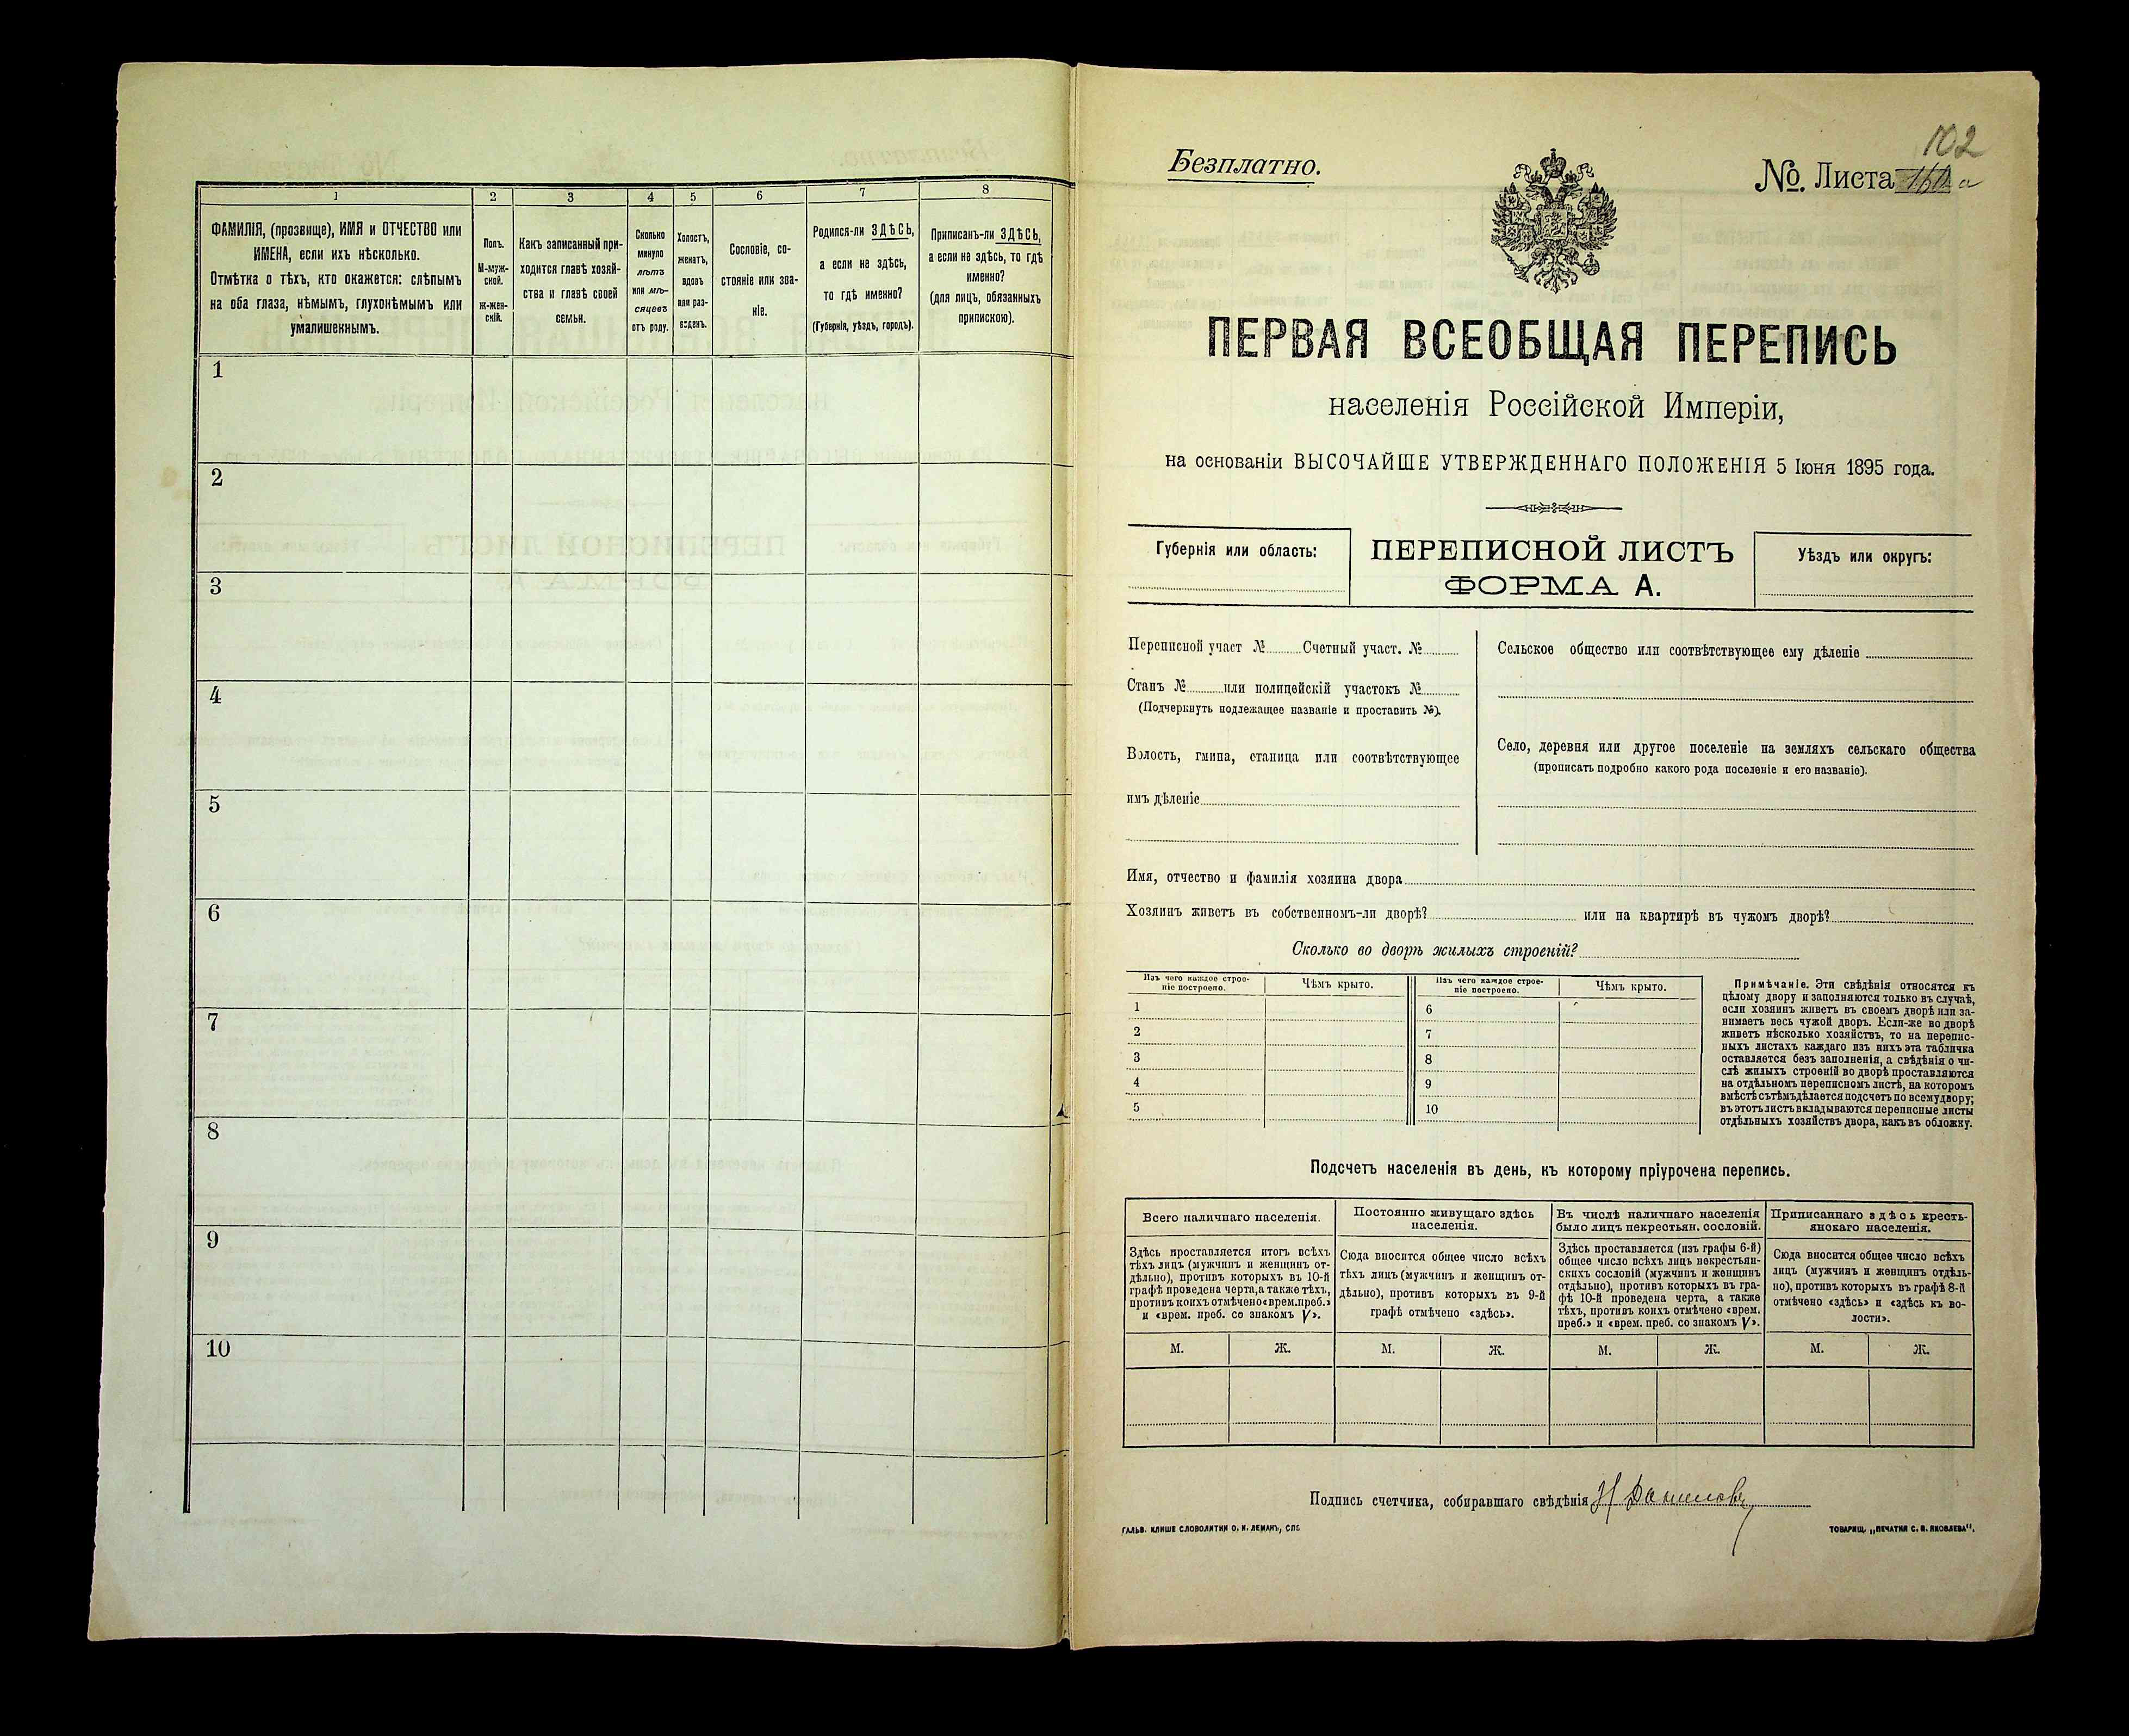 1
2
3
4
5
6
7
8
ФАМИЛІЯ, (прозвище), ИМЯ и ОТЧЕСТВО или
ИМЕНА, если ихъ нѣсколько.
Отмѣтка о тѣхъ, кто окажется: слѣпымъ
на оба глаза, нѣмымъ, глухонѣмымъ или
умалишеннымъ.
Полъ.
М-муж-
ской.
Ж-жен-
скій.
Какъ записанный при-
ходится главѣ хозяй-
ства и главѣ своей
семьи.
Сколько
минуло
лѣтъ
или мѣ-
сяцевъ
отъ роду.
Холостъ,
женатъ,
вдовъ
или раз-
веденъ.
Сословіе, со-
стояніе или зва-
ніе.
Родился-ли ЗДѢСЬ,
а если не здѣсь,
то гдѣ именно?
(Губернія, уѣздъ, городъ).
Приписанъ-ли ЗДѢСЬ,
а если не здѣсь, то гдѣ
именно?
(для лицъ, обязанныхъ
припискою).
1
2
3
4
5
6
7
8
9
10
102
Безплатно.
№. Листа а
ПЕРВАЯ ВСЕОБЩАЯ ПЕРЕПИСЬ
населенія Россійской Имперіи,
на основаніи ВЫСОЧАЙШЕ УТВЕРЖДЕННАГО ПОЛОЖЕНІЯ 5 Іюня 1895 года.
Губернія или область:
ПЕРЕПИСНОЙ ЛИСТЪ
ФОРМА А.
Уѣздъ или округъ:
Переписной участ № Счетный участ. №
Станъ № или полицейскій участокъ №
(Подчеркнуть подлежащее названіе и проставить №).
Волость, гмина, станица или соотвѣтствующее
имъ дѣленіе
Сельское общество или соотвѣтствующее ему дѣленіе
Село, деревня или другое поселеніе на земляхъ сельскаго общества
(прописать подробно какого рода поселеніе и его названіе).
Имя, отчество и фамилія хозяина двора
Хозяинъ живетъ въ собственномъ-ли дворѣ? или на квартирѣ въ чужомъ дворѣ?
Сколько во дворѣ жилыхъ строеній?
Изъ чего каждое строе-
ніе построено.
Чѣмъ крыто.
Изъ чего каждое строе-
ніе построено.
Чѣмъ крыто.
1
2
3
4
5
6
7
8
9
10
Примѣчаніе. Эти свѣдѣнія относятся къ
цѣлому двору и заполняются только въ случаѣ,
если хозяинъ живетъ въ своемъ дворѣ или за-
нимаетъ весь чужой дворъ. Если-же во дворѣ
живетъ нѣсколько хозяйствъ, то на перепис-
ныхъ листахъ каждаго изъ нихъ эта табличка
оставляется безъ заполненія, а свѣдѣнія о чи-
слѣ жилыхъ строеній во дворѣ проставляются
на отдѣльномъ переписномъ листѣ, на которомъ
вмѣстѣ съ тѣмъ дѣлается подсчетъ по всему двору;
въ этотъ листъ вкладываются переписные листы
отдѣльныхъ хозяйствъ двора, какъ въ обложку.
Подсчетъ населенія въ день, къ которому пріурочена перепись.
Всего наличнаго населенія.
Здѣсь проставляется итогъ всѣхъ
тѣхъ лицъ (мужчинъ и женщинъ от-
дѣльно), противъ которыхъ въ 10-й
графѣ проведена черта, а также тѣхъ,
противъ коихъ отмѣчено «врем. преб.»
и «врем. преб. со знакомъ V».
Постоянно живущаго здѣсь
населенія.
Сюда вносится общее число всѣхъ
тѣхъ лицъ (мужчинъ и женщинъ от-
дѣльно), противъ которыхъ въ 9-й
графѣ отмѣчено «здѣсь».
Въ числѣ наличнаго населенія
было лицъ некрестьян. сословій.
Здѣсь проставляется (изъ графы 6-й)
общее число всѣхъ лицъ некрестьян-
скихъ сословій (мужчинъ и женщинъ
отдѣльно), противъ которыхъ въ гра-
фѣ 10-й проведена черта, а также
тѣхъ, противъ коихъ отмѣчено «врем.
преб.» и «врем. преб. со знакомъ V».
Приписаннаго здѣсь кресть-
янскаго населенія.
Сюда вносится общее число всѣхъ
лицъ (мужчинъ и женщинъ отдѣль-
но), противъ которыхъ въ графѣ 8-й
отмѣчено «здѣсь» и «здѣсь къ во-
лости».
М. Ж. М. Ж. М. Ж. М. Ж.
Подпись счетчика, собиравшаго свѣдѣнія Н Даниловъ
ГАЛЬВ. КЛИШЕ СЛОВОЛИТНИ О. И. ЛЕМАНЪ, СПБ
ТОВАРИЩ. „ПЕЧАТНЯ С. П. ЯКОВЛЕВА".